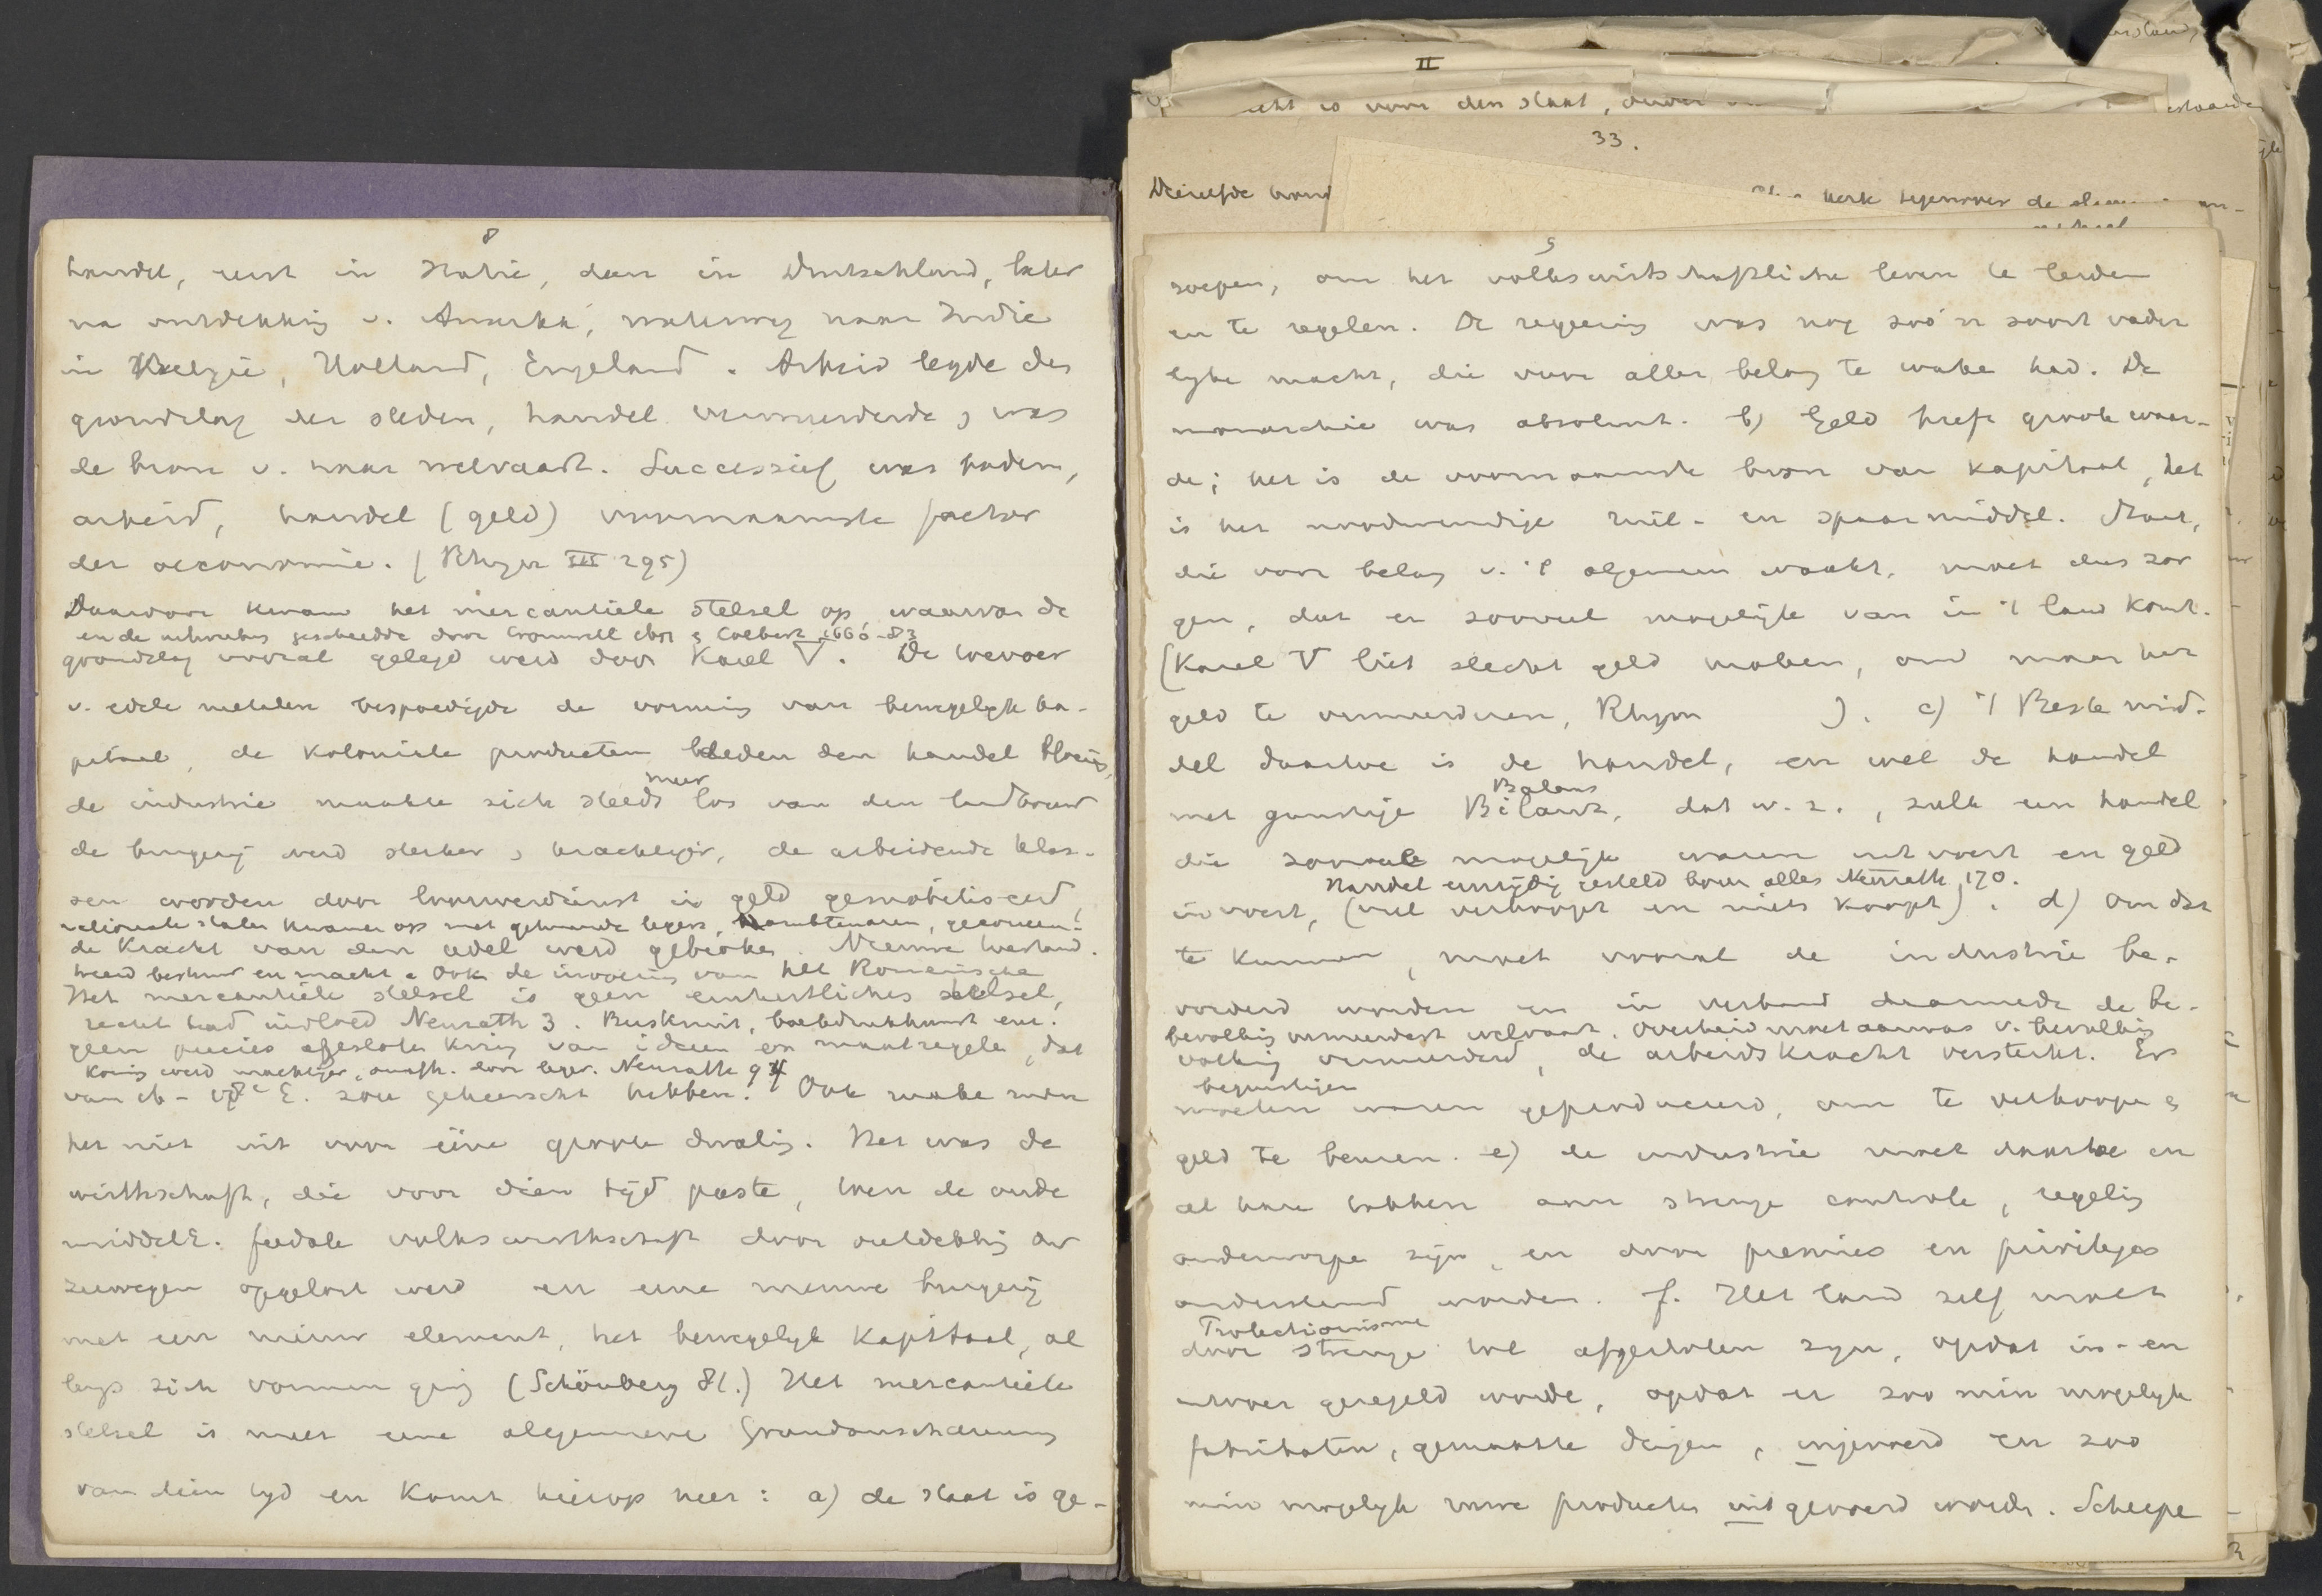 8
handel, eerst in Italië, dan in Duitschland, later
na ontdekking v. Amerika, waterweg naar Indië
in België, Holland, Engeland. Arbeid legde den
grondslag der steden, handel vermeerderde, was
de bron v. haar welvaart. Successief was bodem,
arbeid, handel (geld) voornaamste factor
der oeconomie. (Rhyn III 295)
Daarvoor kwam het mercantiele stelsel op waarvan de
en de scheedde door Cromwell 1651 & Colbert 1660-83
grondslag vooral gelegd werd door Karel V. De toevoer
v. edele metalen bespoedigde de vorming van bewegelyk ka-
pitaal, de koloniale producten deden den handel bloeien,
meer
de industrie maakte zich steeds los van den landbouw
de burgerij werd sterker, krachtiger, de arbeidende klas-
sen worden door loonverdienst in geld gemobiliseerd,
nationale staten kwamen op met gehuurde legers, ambtenaren, geconcen-
de kracht van den adel werd gebroken. Nieuwe toestand.
treerd bestuur en macht. Ook de invoering van het Romeinsche
Het mercantiele stelsel is geen einheitliches stelsel,
recht had invloed Neurath 3. Buskruit, boekdrukkunst enz.
geen precies afgesloten kring van ideen en maatregelen, dat
Koning werd machtiger, onafh. door leger. Neurath 94
van 16-18e E. zou geheerscht hebben. Ook make men
het niet uit voor eene groote dwaling. Het was de
wirthschaft, die voor dien tijd paste, toen de oude
middelE. feodale volkswirthschaft door ontdekking der
zeewegen opgelost werd en eene nieuwe burgerij
met een nieuw element, het bewegelyk kapitaal, al
lengs zich vormen ging (Schönberg 81.) Het mercantiele
stelsel is meer eene algemeene Grundanschauung
van dien tyd en komt hierop neer: a) de staat is ge-
II
is voor den staat,
33.
Dezelfde
werk tegenover de
9
roepen, om het volkswirtschaftliche leven te leiden
en te regelen. De regeering was nog zoo'n soort vader
lyke macht, die voor aller belang te waken had. De
monarchie was absoluut. b) Geld heeft groote waar-
de; het is de voornaamste bron van kapitaal, het
is het noodwendige ruil- en spaarmiddel. Staat,
die voor belang v. 't algemeen waakt, moet dus zor
gen, dat er zooveel mogelijk van in 't land komt.
(Karel V liet slecht geld maken, om maar het
geld te vermeerderen, Rhyn ). c) 't Beste mid-
del daartoe is de handel, en wel de handel
Balans
met gunstige Bilanz, dat w. z., zulk een handel
die zooveel mogelijk waren uitvoert en geld
Handel eenzijdig gesteld boven alles Neurath 170.
invoert, (veel verkoopt en niets koopt). d) Om dat
te kunnen, moet vooral de industrie be-
vorderd worden en in verband daarmede de be-
bevolking vermeerdert welvaart. Overheid moet aanwas v. bevolking
volking vermeerderd, de arbeidskracht versterkt. Er
begunstigen
moeten waren geproduceerd, om te verkoopen &
geld te beuren. e) de industrie moet daartoe in
al hare takken aan strenge controle, regeling
onderworpen zijn, en door premies en privileges
ondersteund worden. f. Het land zelf moet
Protectionisme
door strenge tol afgesloten zyn, opdat in- en
uitvoer geregeld worde, opdat er zoo min mogelyk
fabrikaten, gemaakte dingen, ingevoerd en zoo
min mogelyk ruwe producten uitgevoerd worden. Scheepv